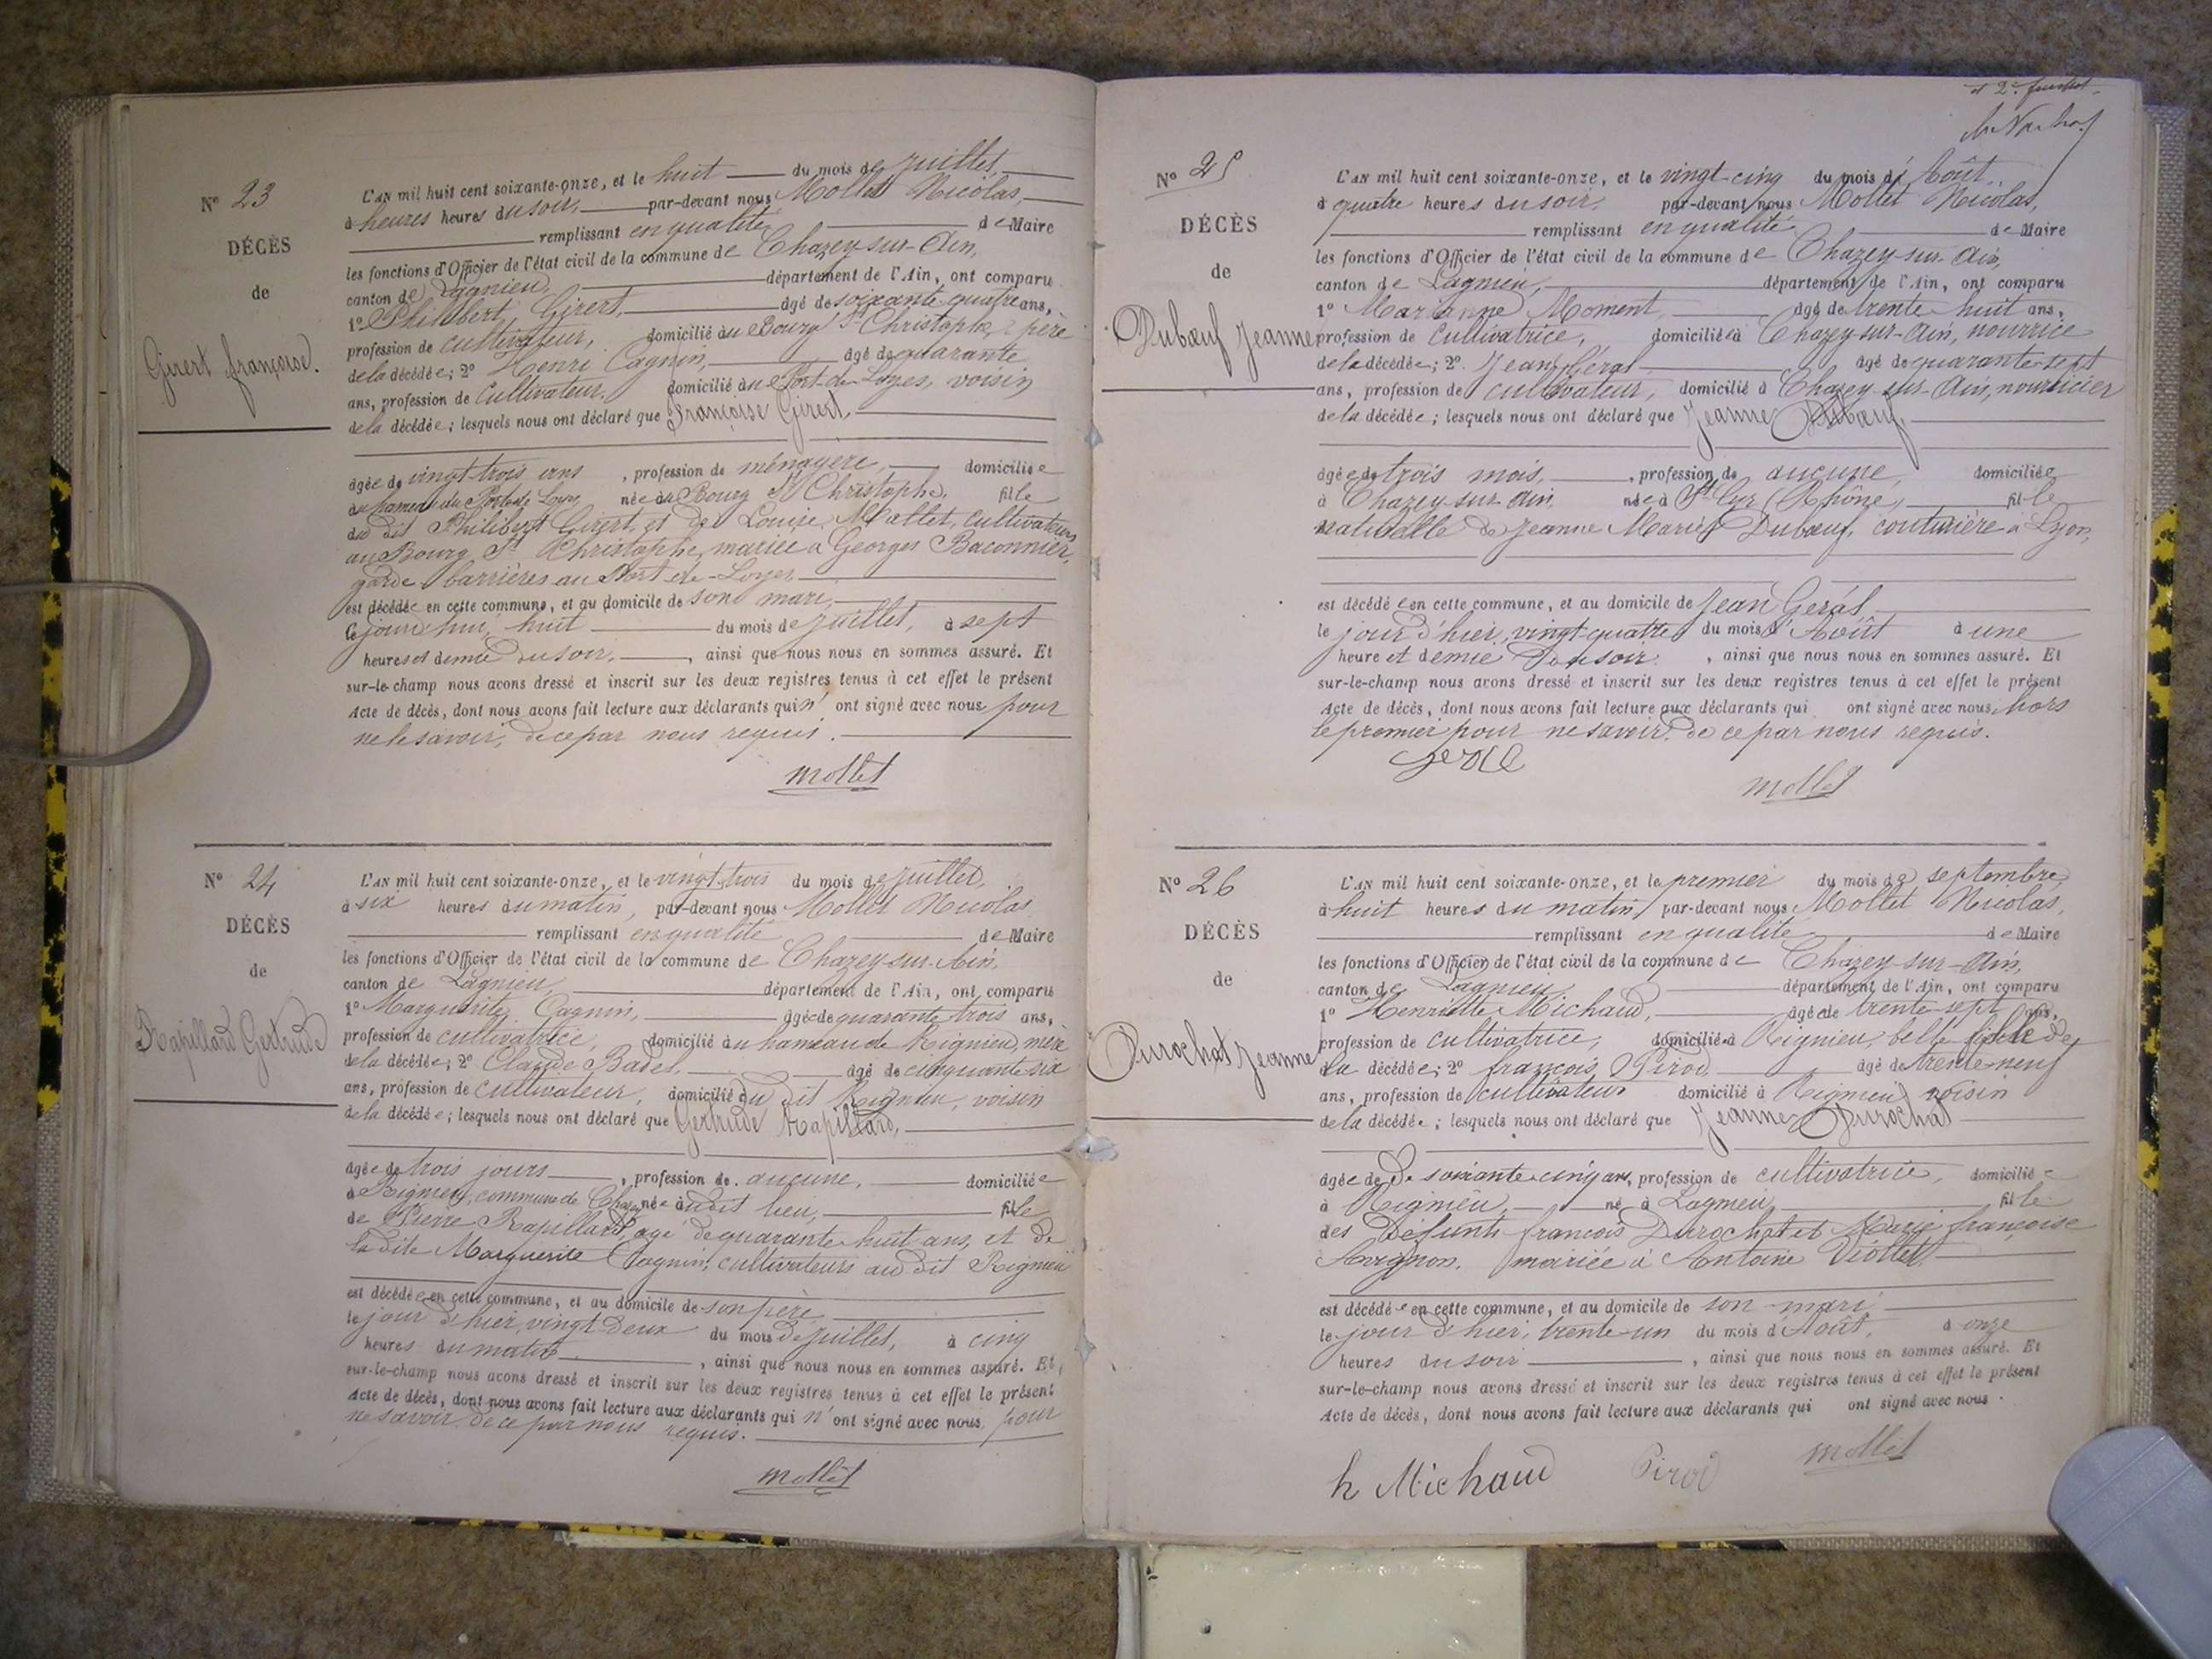 N° 23
DÉCÈS
de
Girert françoise.
L'AN mil huit cent soixante-onze, et le huit du mois de juillet,
à heures heures du soir, par-devant nous Mollet Nicolas,
remplissant en qualité de Maire
les fonctions d'Officier de l'état civil de la commune de Chazey-sur-Ain,
canton de Lagnieu, département de l'Ain, ont comparu
1° Philibert Girert, âgé de soixante quatre ans,
profession de cultivateur, domicilié au Bourg St Christophe, père
de la décédée; 2° Henri Cagnin, âgé de quarante
ans, profession de cultivateur, domicilié au Port-de-Loyes, voisin
de la décédée; lesquels nous ont déclaré que Françoise Girert,
âgée de vingt-trois ans, profession de ménagère, domiciliée
au hameau du Port de Loyes née au Bourg St Christophe, fille
du dit Philibert Girert et de Louise Mallet, cultivateurs
au Bourg St Christophe, mariée à Georges Baconnier,
garde barrières au Port-de-Loyes
est décédée en cette commune, et au domicile de son mari,
Ce jourd'hui, huit du mois de juillet, à sept
heures et demie du soir, ainsi que nous nous en sommes assuré. Et
sur-le-champ nous avons dressé et inscrit sur les deux registres tenus à cet effet le présent
Acte de décès, dont nous avons fait lecture aux déclarants qui n'ont signé avec nous pour
ne le savoir, de ce par nous requis.
Mollet
N° 24
DÉCÈS
de
Rapillard Gertrude
L'AN mil huit cent soixante-onze, et le vingt-trois du mois de juillet,
à six heures du matin, par-devant nous Mollet Nicolas
remplissant en qualité de Maire
les fonctions d'Officier de l'état civil de la commune de Chazey-sur-Ain,
canton de Lagnieu, département de l'Ain, ont comparu
1° Marguerite Cagnin, âgée de quarante trois ans,
profession de cultivatrice, domicilié au hameau de Rignieu, mère
de la décédée; 2° Claude Badel, âgé de cinquante-six
ans, profession de cultivateur, domicilié au dit Rignieu, voisin
de la décédée; lesquels nous ont déclaré que Gertrude Rapillard,
âgée de trois jours, profession de aucune, domiciliée
à Rignieu, commune de Chazey née au dit lieu, fille
de Pierre Rapillard, âgé de quarante huit ans, et de
la dite Marguerite Cagnin, cultivateurs au dit Rignieu
est décédée en cette commune, et au domicile de son père
le jour d'hier, vingt deux du mois de juillet, à cinq
heures du matin, ainsi que nous nous en sommes assuré. Et
sur-le-champ nous avons dressé et inscrit sur les deux registres tenus à cet effet le présent
Acte de décès, dont nous avons fait lecture aux déclarants qui n'ont signé avec nous, pour
ne savoir de ce par nous requis.
Mollet
et 2e
N° 25
DÉCÈS
de
Dubœuf Jeanne
L'AN mil huit cent soixante-onze, et le vingt-cinq du mois d'Août,
à quatre heures du soir, par-devant nous Mollet Nicolas,
remplissant en qualité de Maire
les fonctions d'Officier de l'état civil de la commune de Chazey-sur-Ain,
canton de Lagnieu, département de l'Ain, ont comparu
1° Marianne Moment, âgé de trente huit ans,
profession de cultivatrice, domiciliée à Chazey-sur-Ain, nourrice
de la décédée; 2° Jean Géral âgé de quarante-sept
ans, profession de cultivateur, domicilié à Chazey-sur-Ain, nourricier
de la décédée; lesquels nous ont déclaré que Jeanne Dubœuf
âgée de trois mois, profession de aucune, domiciliée
à Chazey-sur-Ain, née à St Cyr (Rhône), fille
naturelle de Jeanne Marie Dubœuf, couturière à Lyon,
est décédée en cette commune, et au domicile de Jean Géral
le jour d'hier, vingt quatre du mois d'Août à une
heure et demie du soir, ainsi que nous nous en sommes assuré. Et
sur-le-champ nous avons dressé et inscrit sur les deux registres tenus à cet effet le présent
Acte de décès, dont nous avons fait lecture aux déclarants qui ont signé avec nous, hors
le premier pour ne savoir, de ce par nous requis.
Mollet
N° 26
DÉCÈS
de
Durochat Jeanne
L'AN mil huit cent soixante-onze, et le premier du mois de septembre,
à huit heures du matin, par-devant nous Mollet Nicolas,
remplissant en qualité de Maire
les fonctions d'Officier de l'état civil de la commune de Chazey-sur-Ain,
canton de Lagnieu département de l'Ain, ont comparu
1° Henriette Michaud, âgée de trente-sept ans,
profession de cultivatrice, domiciliée à Rignieu, belle fille de
la décédée; 2° françois Pirod âgé de trente-neuf
ans, profession de cultivateur domicilié à Rignieu voisin
de la décédée; lesquels nous ont déclaré que Jeanne Durochat
âgée de de soixante-cinq ans, profession de cultivatrice, domiciliée
à Rignieu, né à Lagnieu, fille
des défunts françois Durochat et Marie françoise
Avignon, mariée à Antoine Viollet
est décédée en cette commune, et au domicile de son mari,
le jour d'hier, trente-un du mois d'Août, à onze
heures du soir, ainsi que nous nous en sommes assuré. Et
sur-le-champ nous avons dressé et inscrit sur les deux registres tenus à cet effet le présent
Acte de décès, dont nous avons fait lecture aux déclarants qui ont signé avec nous.
h Michaud Pirod Mollet